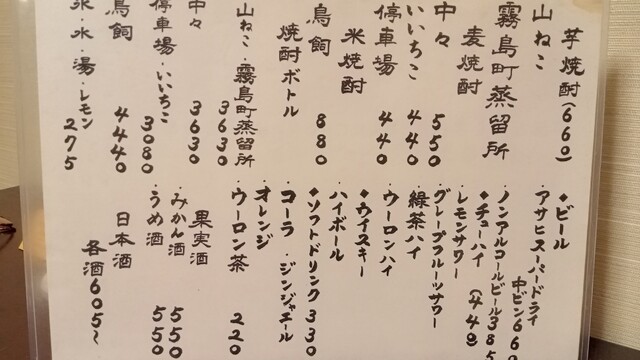 芋焼酎(660)
山ねこ
霧島町蒸留所
麦焼酎
中々 550
いいちこ 440
停車場 440
米焼酎
鳥飼 880
焼酎ボトル
山ねこ・霧島町蒸留所 3630
中々 3630
停車場・いいちこ 3080
鳥飼 4440
氷・水・湯・レモン 275
◆ビール
アサヒスーパードライ
中ビン66
ノンアルコールビール385
◆チューハイ(440)
レモンサワー
グレープフルーツサワー
緑茶ハイ
ウーロンハイ
◆ウイスキー
ハイボール
◆ソフトドリンク330
コーラ ジンジャエール
オレンジ
ウーロン茶 220
果実酒
・みかん酒 550
・うめ酒 550
日本酒
各酒605〜